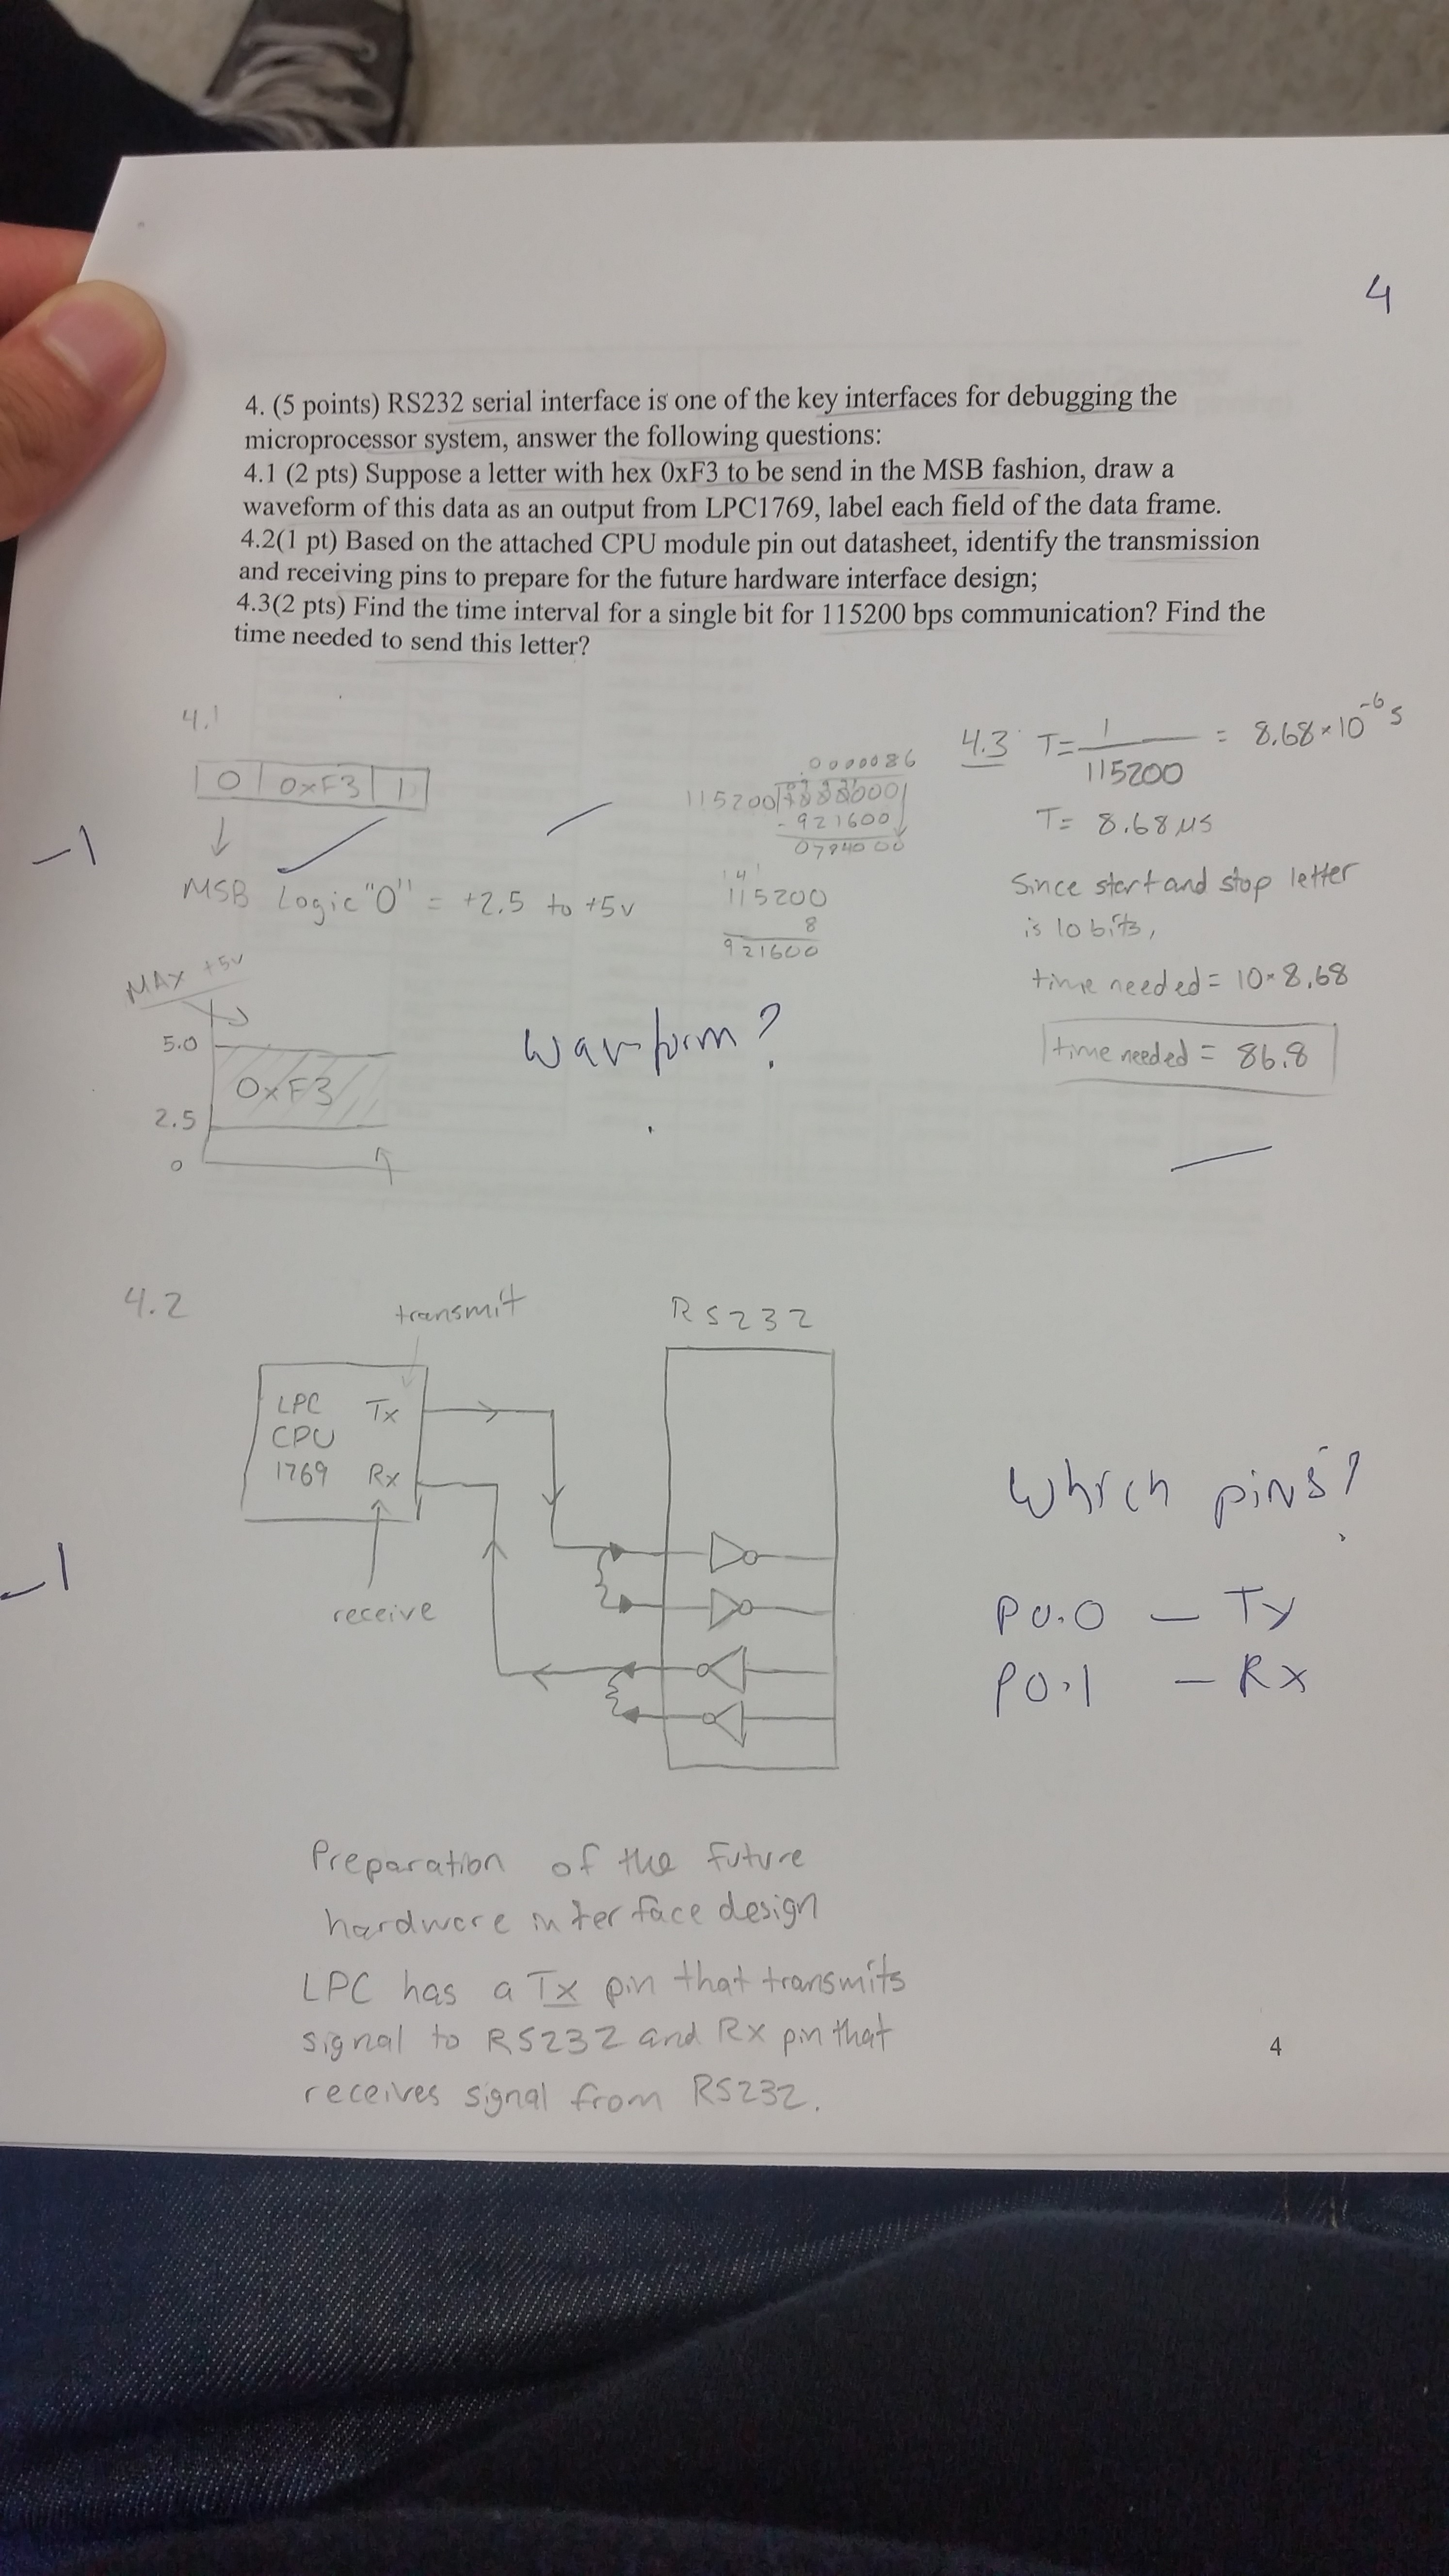 4
4. (5 points) RS232 serial interface is one of the key interfaces for debugging the
microprocessor system, answer the following questions:
4.1 (2 pts) Suppose a letter with hex 0xF3 to be send in the MSB fashion, draw a
waveform of this data as an output from LPC1769, label each field of the data frame.
4.2(1 pt) Based on the attached CPU module pin out datasheet, identify the transmission
and receiving pins to prepare for the future hardware interface design;
4.3(2 pts) Find the time interval for a single bit for 115200 bps communication? Find the
time needed to send this letter?
4.1
0 | 0xF3 | 1
-1
MSB Logic "0" = +2.5 to +5v
MAX +5v
5.0
0xF3
2.5
0
.0000086
115200
-921600
115200
8
921600
Waveform?
4.3 T= 1/115200 = 8.68×10^-6 s
T= 8.68 μs
Since start and stop letter
is 10 bits,
time needed = 10×8.68
time needed = 86.8
4.2
transmit
RS232
LPC Tx
CPU
1769 Rx
receive
-1
Which pins?
P0.0 — Tx
P0.1 — Rx
Preparation of the future
hardware interface design
LPC has a Tx pin that transmits
signal to RS232 and Rx pin that
receives signal from RS232.
4